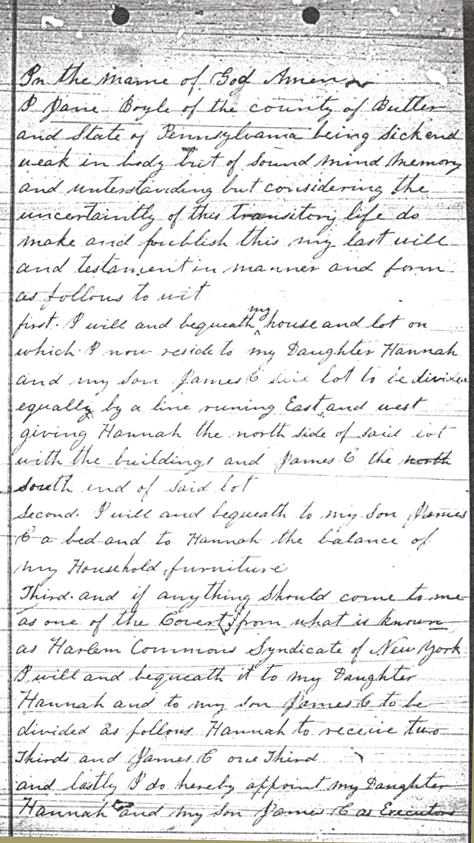 In the name of God Amen
I Jane Boyle of the county of Butler
and State of Pennsylvania being sick and
weak in body but of sound mind memory
and unterstanding but considering the
uncertaintly of this transitory life do
make and publish this my last will
and testament in manner and form
as follows to wit
first. I will and bequeath my house and lot on
which I now reside to my Daughter Hannah
and my son James C said lot to be divided
equally by a line runing East and west
giving Hannah the north side of said lot
with the buildings and James C the north
south end of said lot
Second. I will and bequeath to my son James
C a bed and to Hannah the balance of
my Household furniture
Third. and if anything Should come to me
as one of the Covert from what is known
as Harlem Commons Syndicate of New York
I will and bequeath it to my Daughter
Hannah and to my son James C to be
divided as follows Hannah to receive two
Thirds and James C one Third
and lastly I do hereby appoint my Daughter
Hannah and my Son James C as Executors